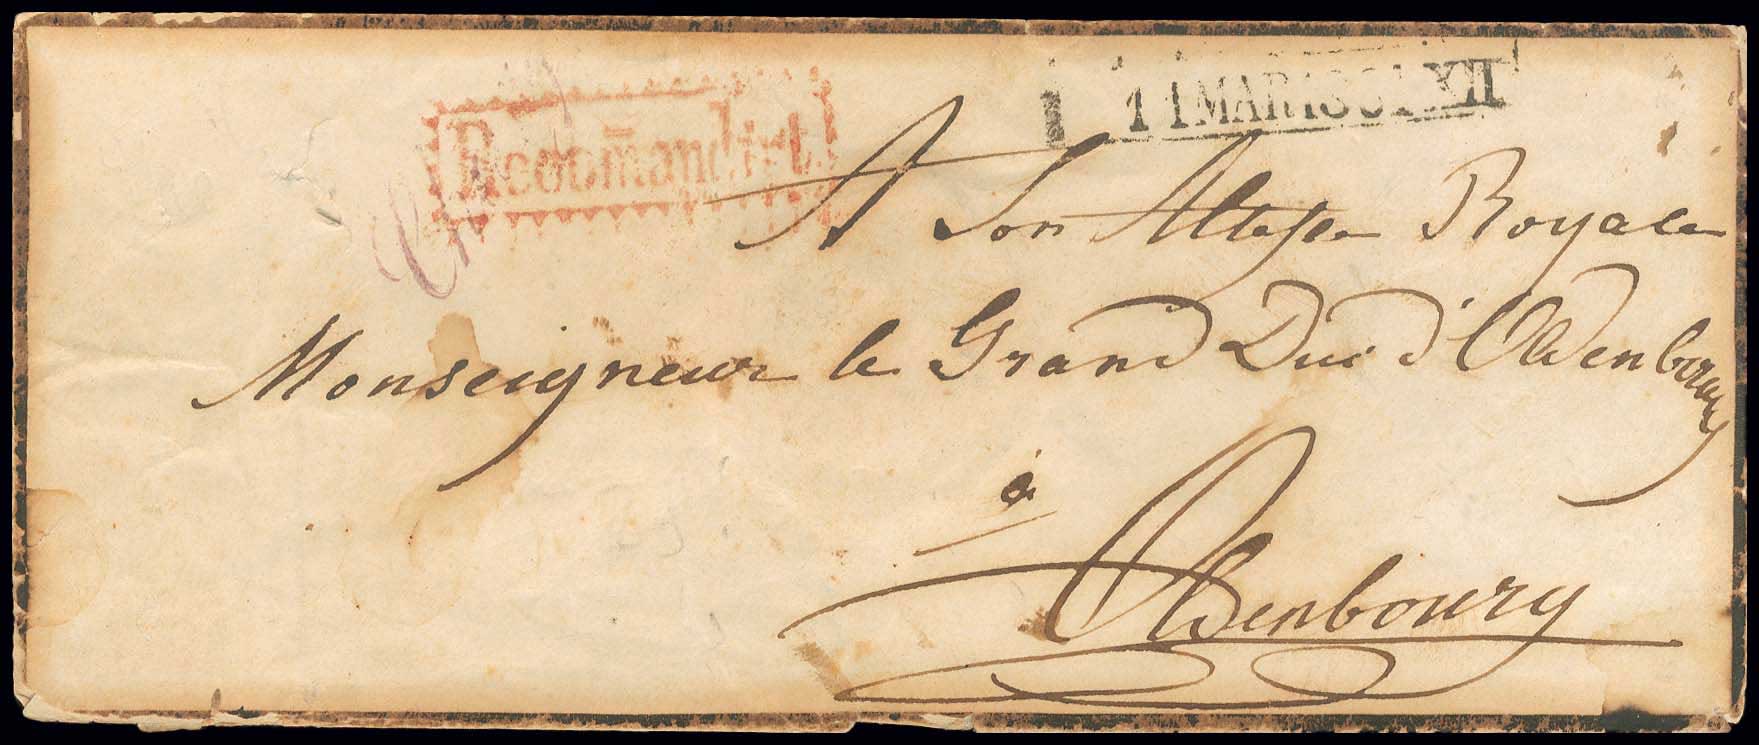 Recom̄andirt
11 MAR 1861 XII
A Son Altesse Royale
Monseigneur le Grand Duc d'Oldenbourg
à
Oldenbourg